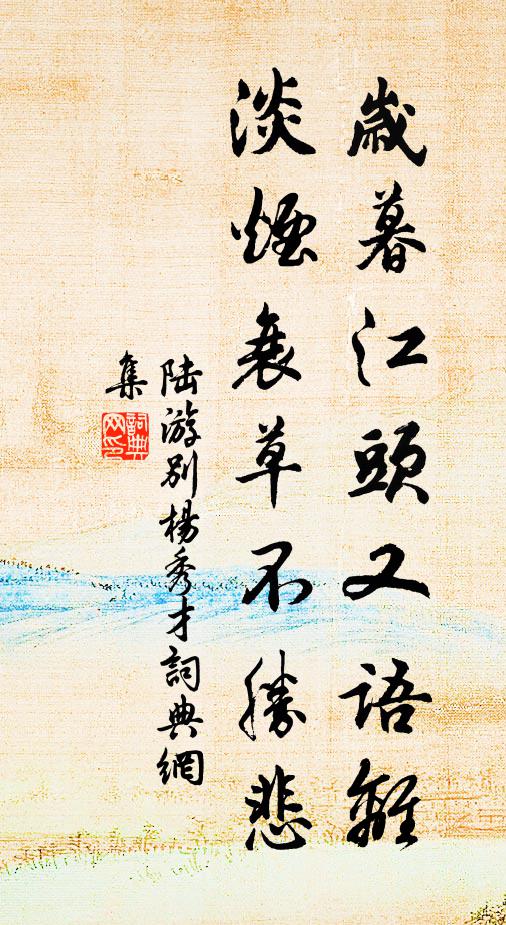 歲暮江頭又語離
淡煙衰草不勝悲
陸游別楊秀才詞典網
集
詞典
网印